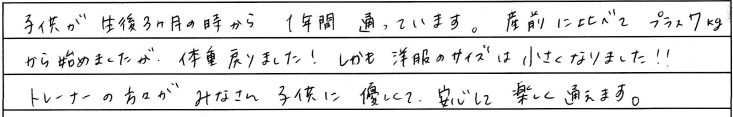 子供が生後3ヶ月の時から 1年間 通っています。産前に比べて プラス7kg
から始めましたが、体重戻りました！しかも 洋服のサイズは 小さくなりました!!
トレーナーの方々が みなさん 子供に 優しくて、安心して 楽しく 通えます。